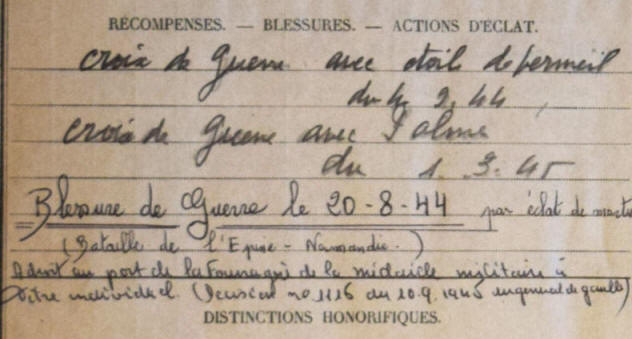 RÉCOMPENSES. — BLESSURES. — ACTIONS D'ÉCLAT.
croix de Guerre avec étoile de Vermeil
du 4. 2. 44
croix de Guerre avec Palme
du 1. 3. 45
Blessure de Guerre le 20-8-44 par éclat de
(Bataille de l' - Normandie.)
Adroit au port de la Fouragère de la médaille militaire à
titre individuel. (Décision no 1116 du 10.9.1945 du général de gaulle)
DISTINCTIONS HONORIFIQUES.